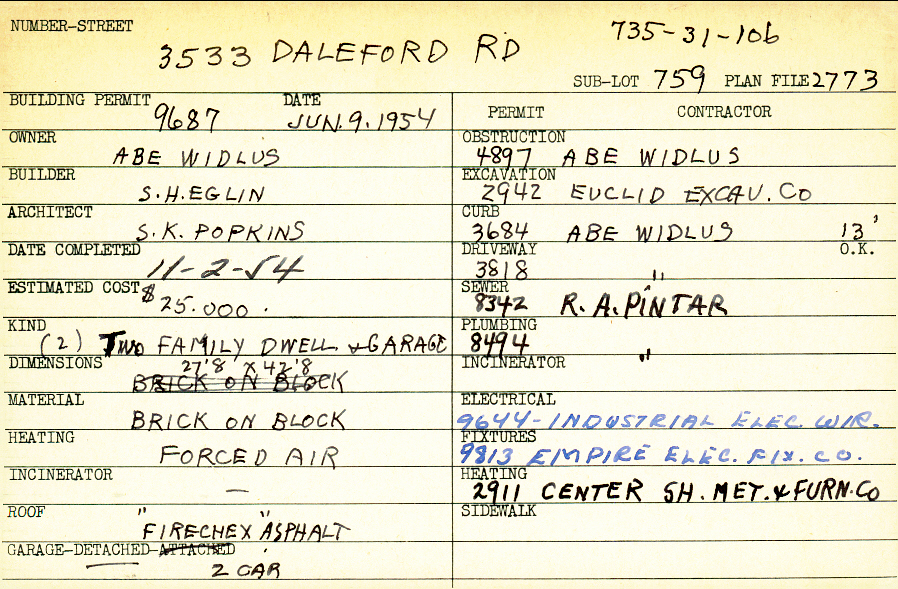 NUMBER-STREET
3533 DALEFORD RD
735-31-106
SUB-LOT 759 PLAN FILE 2773
BUILDING PERMIT 9687 DATE JUN. 9. 1954
OWNER
ABE WIDLUS
BUILDER
S.H. EGLIN
ARCHITECT
S.K. POPKINS
DATE COMPLETED
11-2-54
ESTIMATED COST $25.000.
KIND
(2) TWO FAMILY DWELL. & GARAGE
DIMENSIONS 27'8" X 42'8
BRICK ON BLOCK
MATERIAL
BRICK ON BLOCK
HEATING
FORCED AIR
INCINERATOR
—
ROOF " "
FIRECHEX ASPHALT
GARAGE-DETACHED-ATTACHED
2 CAR
PERMIT CONTRACTOR
OBSTRUCTION
4897 ABE WIDLUS
EXCAVATION
2942 EUCLID EXCAV. CO
CURB
3684 ABE WIDLUS 13'
DRIVEWAY O.K.
3818 "
SEWER
8342 R.A. PINTAR
PLUMBING
8494 "
INCINERATOR
ELECTRICAL
9644-INDUSTRIAL ELEC. WIR.
FIXTURES
9813 EMPIRE ELEC. FIX. CO.
HEATING
2911 CENTER SH. MET. & FURN. CO
SIDEWALK